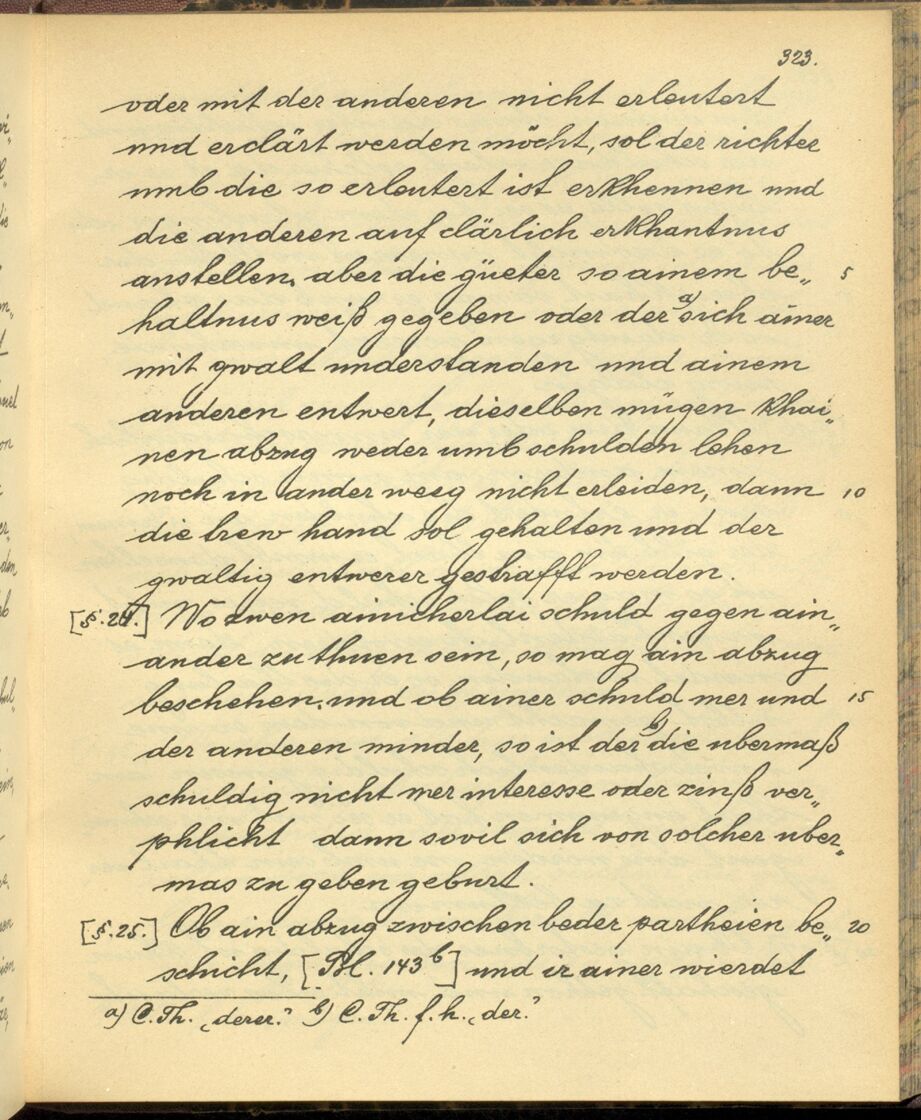 323.
oder mit der anderen nicht erleutert
und erclärt werden möcht, sol der richter
umb die so erleutert ist erkhennen und
die anderen auf clärlich erkhantnus
anstellen, aber die güeter so ainem be„ 5
haltnus weiß gegeben oder der a) sich ainer
mit gwalt understanden und ainem
anderen entwert, dieselben mügen khai„
nen abzug weder umb schulden lehen
noch in ander weeg nicht erleiden, dann 10
die trew hand sol gehalten und der
gwaltig entwerer gestrafft werden.
[§. 24.] Wo zwen ainicherlai schuld gegen ain„
ander zu thuen sein, so mag ain abzug
beschehen, und ob ainer schuld mer und 15
der anderen minder, so ist der b) die ubermaß
schuldig nicht mer interesse oder zinß ver„
phlicht dann sovil sich von solcher uber„
mas zu geben geburt.
[§. 25.] Ob ain abzug zwischen beder partheien be„ 20
schicht, [Bl. 143 b] und ir ainer wierdet
a) C. Th. „derer." b) C. Th. f. h. „der."